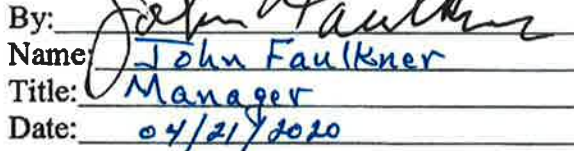 By: John Faulkner
Name: John Faulkner
Title: Manager
Date: 04/21/2020